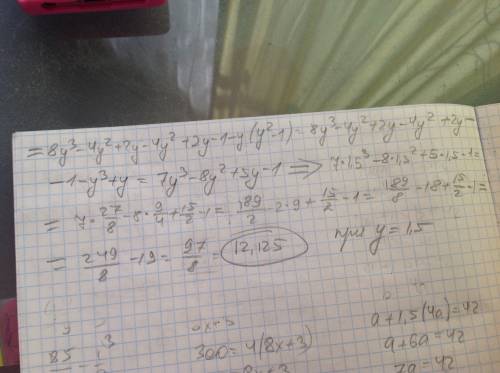 = 8y³-4y²+2y-4y²+2y-1-y(y²-1) = 8y³-4y²+2y-4y²+2y-
-1-y³+y = 7y³-8y²+5y-1 => 7·1,5³-8·1,5²+5·1,5-1=
= 7·27/8-8·9/4+15/2-1= 189/2-2·9+15/2-1= 189/8-18+15/2-1=
= 249/8-19= 97/8= 12,125 при y=1,5
300=4(8x+3)
a+1,5(4a)=42
a+6a=42
7a=42